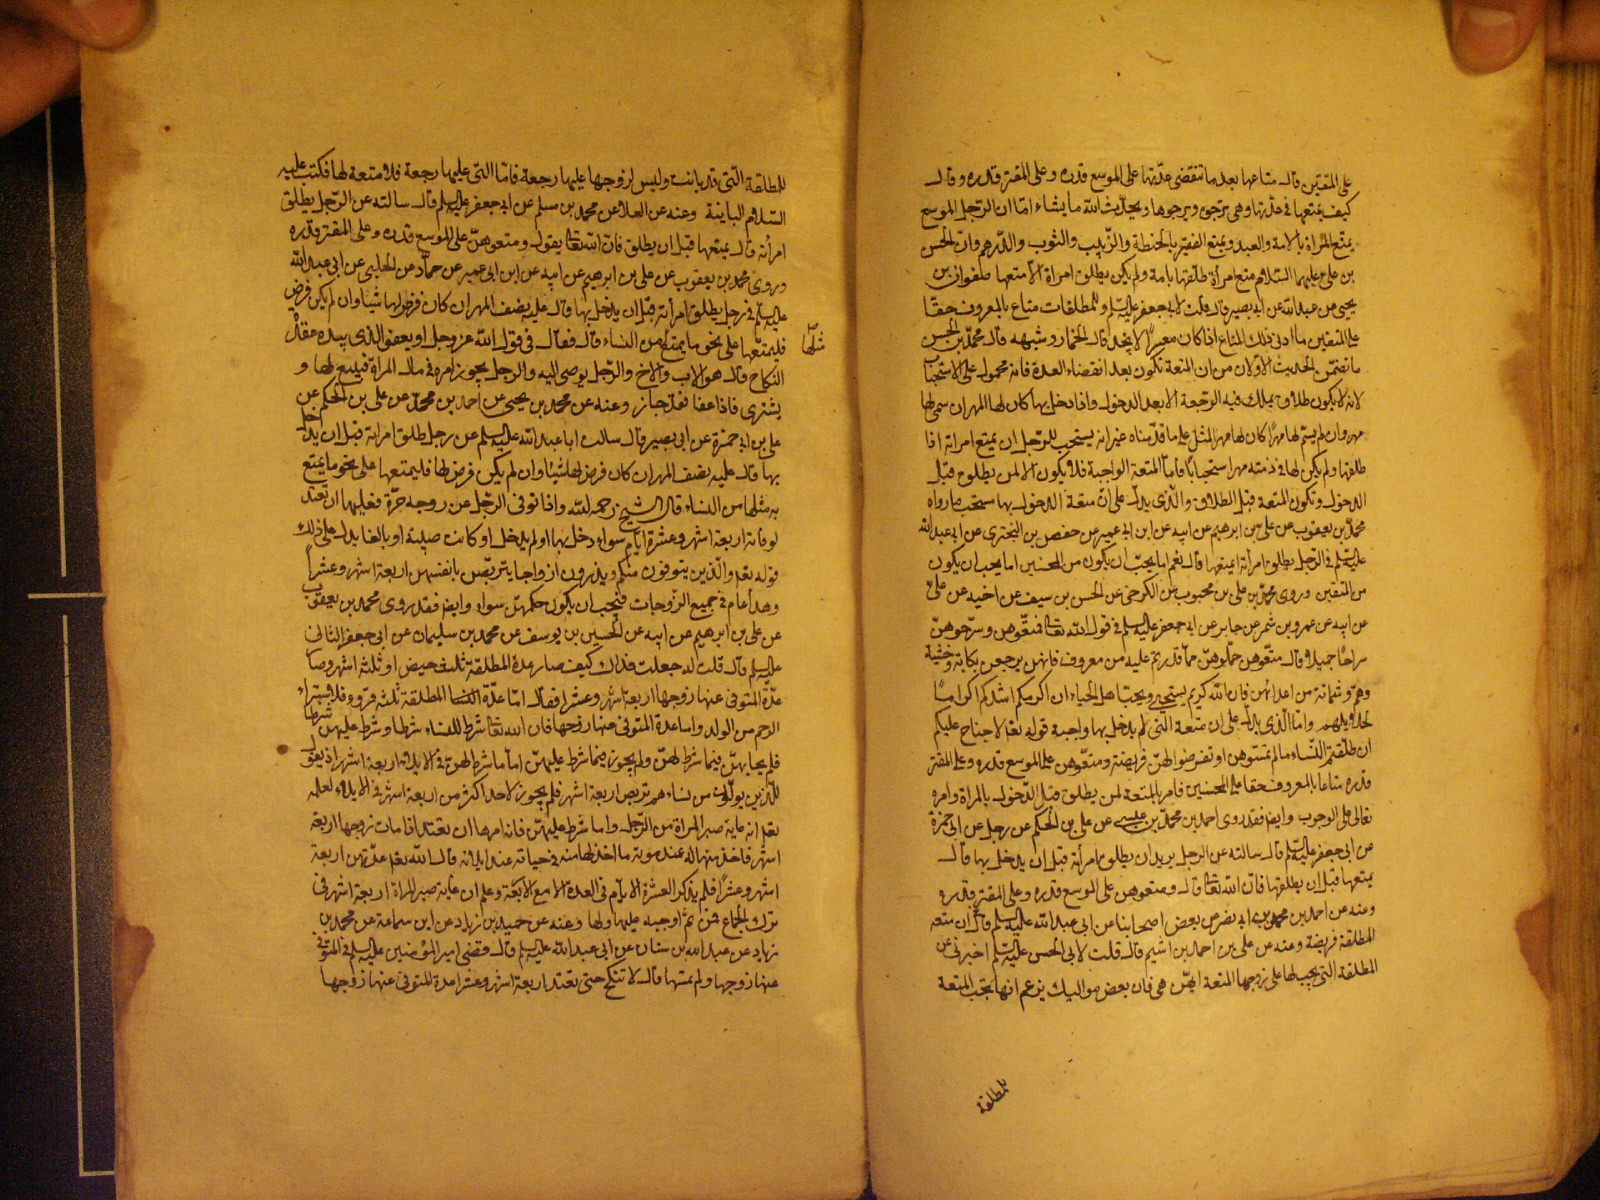 على المتقين قال متاعها بعد ما تنقضى عدّتها على الموسع قدره وعلى المقتر قدره وقال
كيف يمتعها فى عدّتها وهى ترجوه ويرجوها ويحدث الله ما يشاء امّا ان الرّجل الموسع
يمتع المرأة بالامة والعبد ويمتع الفقير بالحنطة والزّبيب والثوب والدّرهم وان الحسن
بن على عليهما السّلام متع امرأة طلّقها بامة ولم يكن يطلق امراة الّا متعها صفوان بن
يحيى عن عبد الله عن ابى بصير قال قلت لابى جعفر عليه السّلم وللمطلقات متاع بالمعروف حقّا
على المتقين ما ادنى ذلك المتاع اذا كان معسرًا لا يجد قال الخمار وشبهه قال محمّد بن الحسن
ما تضمّن الحديث الاوّلان من ان المتعة تكون بعد انقضاء العدة فانه محمول على الاستحباب
لانه لا يكون طلاق يملك فيه الرّجعة الا بعد الدخول واذا دخل بها كان لها المهر ان سمى لها
مهر وان لم يسمّ لها مهرًا كان لها مهر المثل على ما قدّمناه غير انه يستحب للرّجل ان يمتع امراته اذا
طلقها ولم يكن لها فى ذمته مهر استحبابًا فامّا المتعة الواجبة فلا يكون الا لمن يطلق قبل
الدخول وتكون المتعة قبل الطلاق والّذى يدلّ على انّ متعة المدخول بها مستحب ما رواه
محمّد بن يعقوب عن علىّ بن ابرهيم عن ابيه عن ابن ابى عمير عن حفص بن البخترى عن ابى عبد الله
عليه السّلم فى الرّجل يطلق امرأته ايمتعها قال نعم اما يحبّ ان يكون من المحسنين اما يحب ان يكون
من المتقين وروى محمّد بن على بن محبوب عن الكرخى عن الحسن بن سيف عن اخيه عن علىّ
عن ابيه عن عمرو بن شمر عن جابر عن ابى جعفر عليه السّلم فى قول الله تعالى فمتّعوهنّ وسرّحوهنّ
سراحًا جميلا قال متّعوهن حمّلوهنّ ممّا قدرتم عليه من معروف فانهن يرجعن بكابة وخشية
وهمّ وشماتة من اعدائهن فان الله كريم يستحيى ويحبّ اهل الحياء ان اكرمكم اشدكم اكرامًا
لحلايلهم وامّا الّذى يدلّ على ان متعة الّتى لم يدخل بها واجبة قوله تعالى لا جناح عليكم
ان طلّقتم النّساء ما لم تمسّوهن او تفرضوا لهنّ فريضة ومتّعوهن على الموسع قدره وعلى المقتر
قدره متاعا بالمعروف حقا على المحسنين فامر بالمتعة لمن يطلق قبل الدّخول بالمراة وامره
تعالى على الوجوب وايضا فقد روى احمد بن محمّد بن عيسى عن على بن الحكم عن رجل عن ابى حمزة
عن ابى جعفر عليه السّلم قال سالته عن الرجل يريد ان يطلق امرأته قبل ان يدخل بها قال
يمتعها قبل ان يطلقها فانّ الله تعالى قال ومتعوهن على الموسع قدره وعلى المقتر قدره
وعنه عن احمد بن محمد بن ابى نصر عن بعض اصحابنا عن ابى عبد الله عليه السّلم قال ان متعه
المطلقة فريضة وعنه عن على بن احمد بن اشيم قال قلت لابى الحسن عليه السّلم اخبرنى عن
المطلقة التى يجب لها على زوجها المتعة ايهنّ هى فان بعض مواليك يزعم انها تجب المتعة
للمطلقة
للمطلقة الّتى قد بانت وليس لزوجها عليها رجعة فامّا الّتى عليها رجعة فلا متعة لها فكتب عليه
السّلام الباينة وعنه عن العلا عن محمد بن مسلم عن ابى جعفر عليه السّلم قال سالته عن الرّجل يطلق
امرأته قال يمتعها قبل ان يطلق فانّ الله تعالى يقول ومتعوهنّ على الموسع قدره وعلى المقتر قدره
وروى محمد بن يعقوب عن على بن ابرهيم عن ابيه عن ابن ابى عمير عن حمّاد عن الحلبى عن ابى عبد الله
عليه السّلم فى رجل يطلق امرأته قبل ان يدخل بها قال عليه نصف المهر ان كان فرض لها شيا وان لم يكن فرض
فليمتعها على نحو ما يمتع من النساء قال فقال فى قول الله عزّ وجل او يعفو الذى بيده عقدة
مثلها صح
النكاح قال هو الاب والاخ والرّجل يوصى اليه والرجل يجوز امره فى مال المراة فيبيع لها و
يشترى فاذا عفا فقد جاز وعنه عن محمد بن يحيى عن احمد بن محمّد عن على بن الحكم عن
على بن ابى حمزة عن ابى بصير قال سالت ابا عبد الله عليه السلم عن رجل طلق امراته قبل ان يدخل
بها قال عليه نصف المهر ان كان فرض لها شيا وان لم يكن فرض لها فليمتعها على نحو ما يمتع
به مثلها من النساء قال الشيخ رحمه الله واذا توفى الرّجل عن زوجه حرّة فعليها ان تعتد
لوفاته اربعة اشهر وعشرة ايّام سواء دخل بها او لم يدخل او كانت صبيّة او بالغا يدل على ذلك
قوله تعالى والّذين يتوفون منكم ويذرون ازواجا يتربّصن بانفسهن اربعة اشهر وعشرًا
وهذا عام فى جميع الزّوجات فيجب ان يكون حكمهنّ سواء وايضا فقد روى محمد بن يعقوب
عن على بن ابرهيم عن ابيه عن الحسين بن يوسف عن محمد بن سليمان عن ابى جعفر الثانى
عليه السّلم قال قلت له جعلت فداك كيف صار عدة المطلقة ثلث حيض او ثلثة اشهر وصار
عدّة المتوفى عنها زوجها اربعة اشهر وعشرا فقال امّا عدّة المطلقة ثلثة قروء فلاستبراء
الرحم من الولد واما عدة المتوفى عنها زوجها فان الله تعالى شرط للنساء شرطا وشرط عليهنّ شرطا
فلم يحابهنّ فيما شرط لهنّ ولم يجز فيما شرط عليهنّ امّا ما شرط لهنّ فى الايلاء اربعة اشهر اذ يقول
للّذين يؤلون من نساءهم تربص اربعة اشهر فلم يجوز لاحد اكثر من اربعة اشهر فى الايلاء لعلمه
تعالى انه غاية صبر المراة من الرّجل واما شرط عليهنّ فانه امرها ان تعتد اذا مات زوجها اربعة
اشهر فاخذ منها له عند موته ما اخذ لها منه فى حياته عند ايلائه قال الله تعالى عدّتهن اربعة
اشهر وعشرًا فلم يذكر العشرة الايّام فى العدة الا مع الاربعة وعلم ان غاية صبر المراة اربعة اشهر فى
ترك الجماع فمن ثمّ اوجبه عليها ولها وعنه عن حميد بن زياد عن ابن سماعة عن محمد بن
زياد عن عبد الله بن سنان عن ابى عبد الله عليه السلم قال قضى امير المؤمنين عليه السلم فى المتوفّى
عنها زوجها ولم يمسّها قال لا تنكح حتى تعتد اربعة اشهر وعشرا عدة المتوفى عنها زوجها